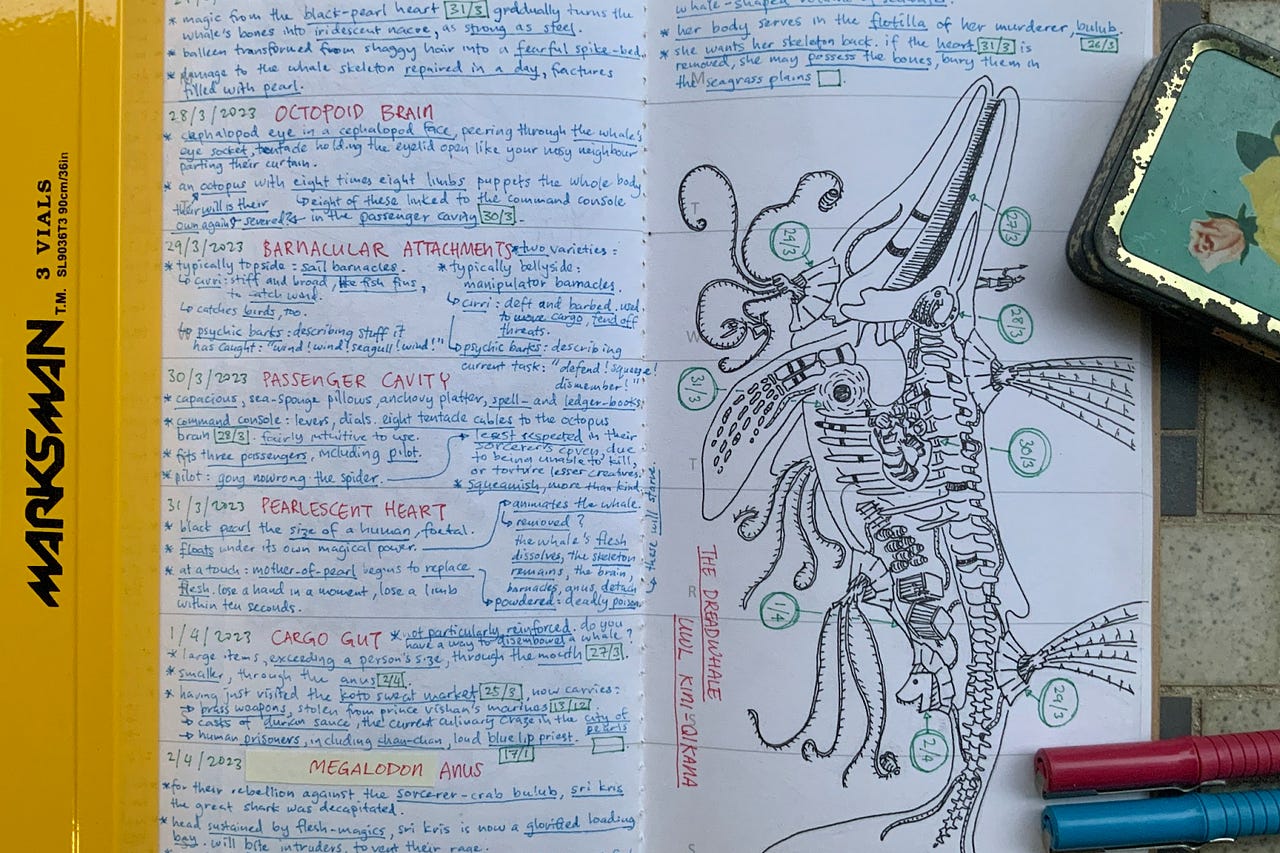 MARKSMAN T.M.
3 VIALS
SL9036T3 90cm/36in
* magic from the black-pearl heart 31/3 gradually turns the
whale's bones into iridescent nacre, as strong as steel.
* balleen transformed from shaggy hair into a fearful spike-bed.
* damage to the whale skeleton repaired in a day, fractures
filled with pearl.
28/3/2023 OCTOPOID BRAIN
* cephalopod eye in a cephalopod face, peering through the whale's
eye socket, tentacle holding the eyelid open like your nosy neighbour
parting their curtain.
* an octopus with eight times eight limbs puppets the whole body
↳ eight of these linked to the command console
in the passenger cavity 30/3.
their will is their
own against severed?
29/3/2023 BARNACULAR ATTACHMENTS * two varieties:
* typically topside: sail barnacles.
↳ cirri: stiff and broad, like fish fins,
to catch wind.
↳ catches birds, too.
↳ psychic barks: describing stuff it
has caught: "wind! wind! seagull! wind!"
* typically bellyside:
manipulator barnacles.
↳ cirri: deft and barbed. used
to move cargo, fend off
threats.
↳ psychic barks: describing
current task: "defend! squeeze!
dismember!"
30/3/2023 PASSENGER CAVITY
* capacious, sea-sponge pillows, anchovy platter, spell- and ledger-books.
* command console: levers, dials. eight tentacle cables to the octopus
brain 28/3. fairly intuitive to use.
* fits three passengers, including pilot.
* pilot: gong nowrong the spider.
→ least respected in their
sorcerer's coven, due
to being unable to kill,
or torture lesser creatures.
* squeamish, more than kind.
31/3/2023 PEARLESCENT HEART
* black pearl the size of a human, foetal.
* floats under its own magical power.
* at a touch: mother-of-pearl begins to replace
flesh. lose a hand in a moment, lose a limb
within ten seconds.
→ animates the whale.
↳ removed?
the whale's flesh
dissolves, the skeleton
remains, the brain,
barnacles, anus, detach
→ powdered: deadly poison.
→ these will starve.
1/4/2023 CARGO GUT * not particularly reinforced. do you
have a way to disembowel a whale?
* large items, exceeding a person's size, through the mouth 27/3.
* smaller, through the anus 2/4.
* having just visited the koto sweat market 25/3, now carries:
→ brass weapons, stolen from prince vishan's marinas 13/12
→ casks of durian sauce, the current culinary craze in the city of
pearls
→ human prisoners, including chau-chan, loud blue lip priest.
17/1
2/4/2023 MEGALODON ANUS
* for their rebellion against the sorcerer-crab bulub, sri kris
the great shark was decapitated.
* head sustained by flesh-magics, sri kris is now a glorified loading
bay. will bite intruders, to vent their rage.
whale-shaped
* her body serves in the flotilla of her murderer, bulub.
26/3
* she wants her skeleton back. if the heart 31/3 is
removed, she may possess the bones, bury them in
the seagrass plains
M
T
W
T
R
S
S
29/3
27/3
28/3
31/3
30/3
1/4
29/3
2/4
THE DREADWHALE
ULUL KINI-QIKANA